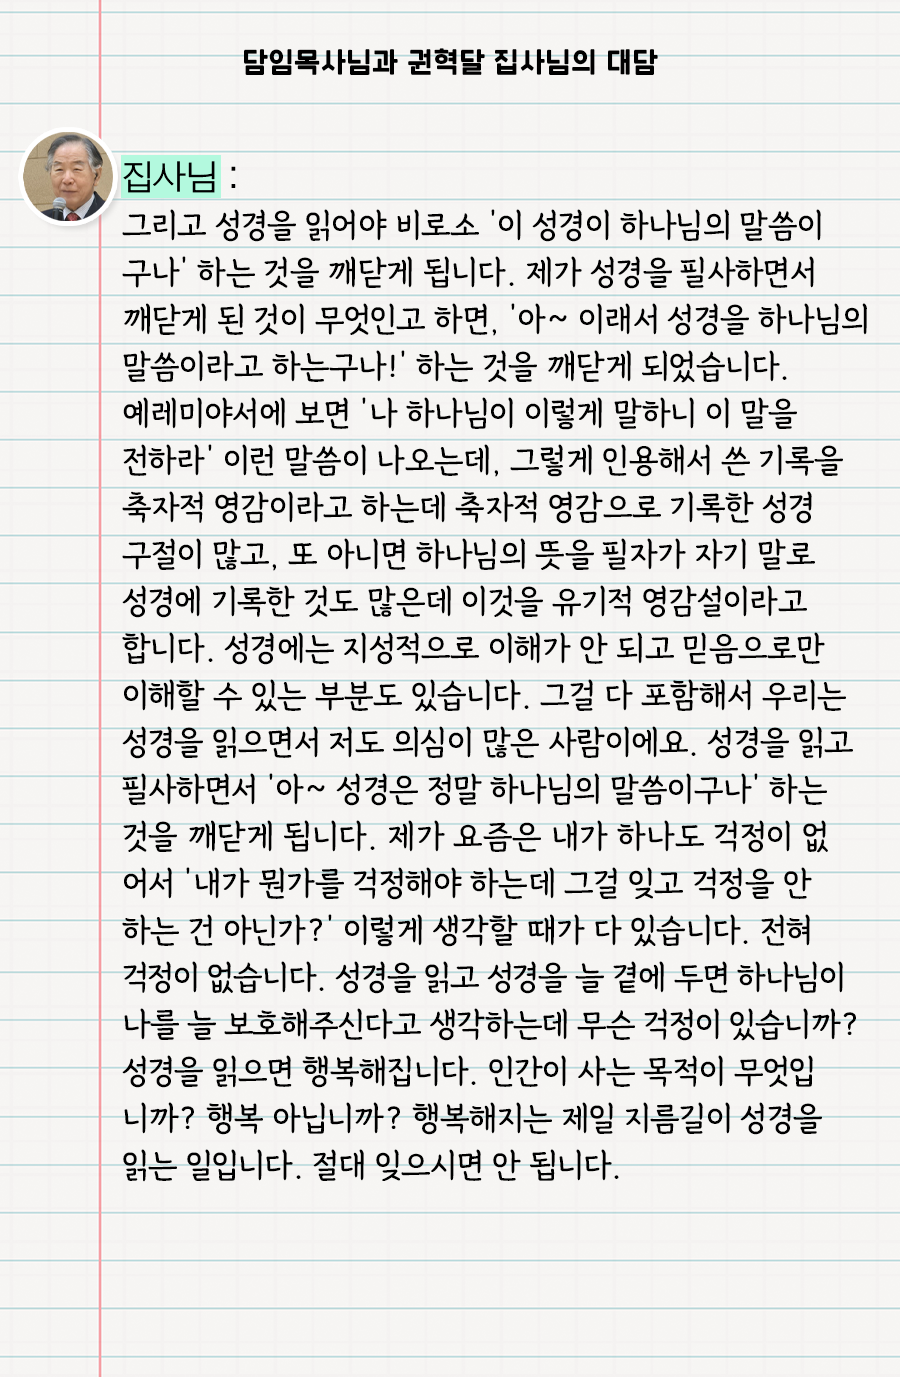 담임목사님과 권혁달 집사님의 대담
집사님 :
그리고 성경을 읽어야 비로소 '이 성경이 하나님의 말씀이
구나' 하는 것을 깨닫게 됩니다. 제가 성경을 필사하면서
깨닫게 된 것이 무엇인고 하면, '아~ 이래서 성경을 하나님의
말씀이라고 하는구나!' 하는 것을 깨닫게 되었습니다.
예레미야서에 보면 '나 하나님이 이렇게 말하니 이 말을
전하라' 이런 말씀이 나오는데, 그렇게 인용해서 쓴 기록을
축자적 영감이라고 하는데 축자적 영감으로 기록한 성경
구절이 많고, 또 아니면 하나님의 뜻을 필자가 자기 말로
성경에 기록한 것도 많은데 이것을 유기적 영감설이라고
합니다. 성경에는 지성적으로 이해가 안 되고 믿음으로만
이해할 수 있는 부분도 있습니다. 그걸 다 포함해서 우리는
성경을 읽으면서 저도 의심이 많은 사람이에요. 성경을 읽고
필사하면서 '아~ 성경은 정말 하나님의 말씀이구나' 하는
것을 깨닫게 됩니다. 제가 요즘은 내가 하나도 걱정이 없
어서 '내가 뭔가를 걱정해야 하는데 그걸 잊고 걱정을 안
하는 건 아닌가?' 이렇게 생각할 때가 다 있습니다. 전혀
걱정이 없습니다. 성경을 읽고 성경을 늘 곁에 두면 하나님이
나를 늘 보호해주신다고 생각하는데 무슨 걱정이 있습니까?
성경을 읽으면 행복해집니다. 인간이 사는 목적이 무엇입
니까? 행복 아닙니까? 행복해지는 제일 지름길이 성경을
읽는 일입니다. 절대 잊으시면 안 됩니다.